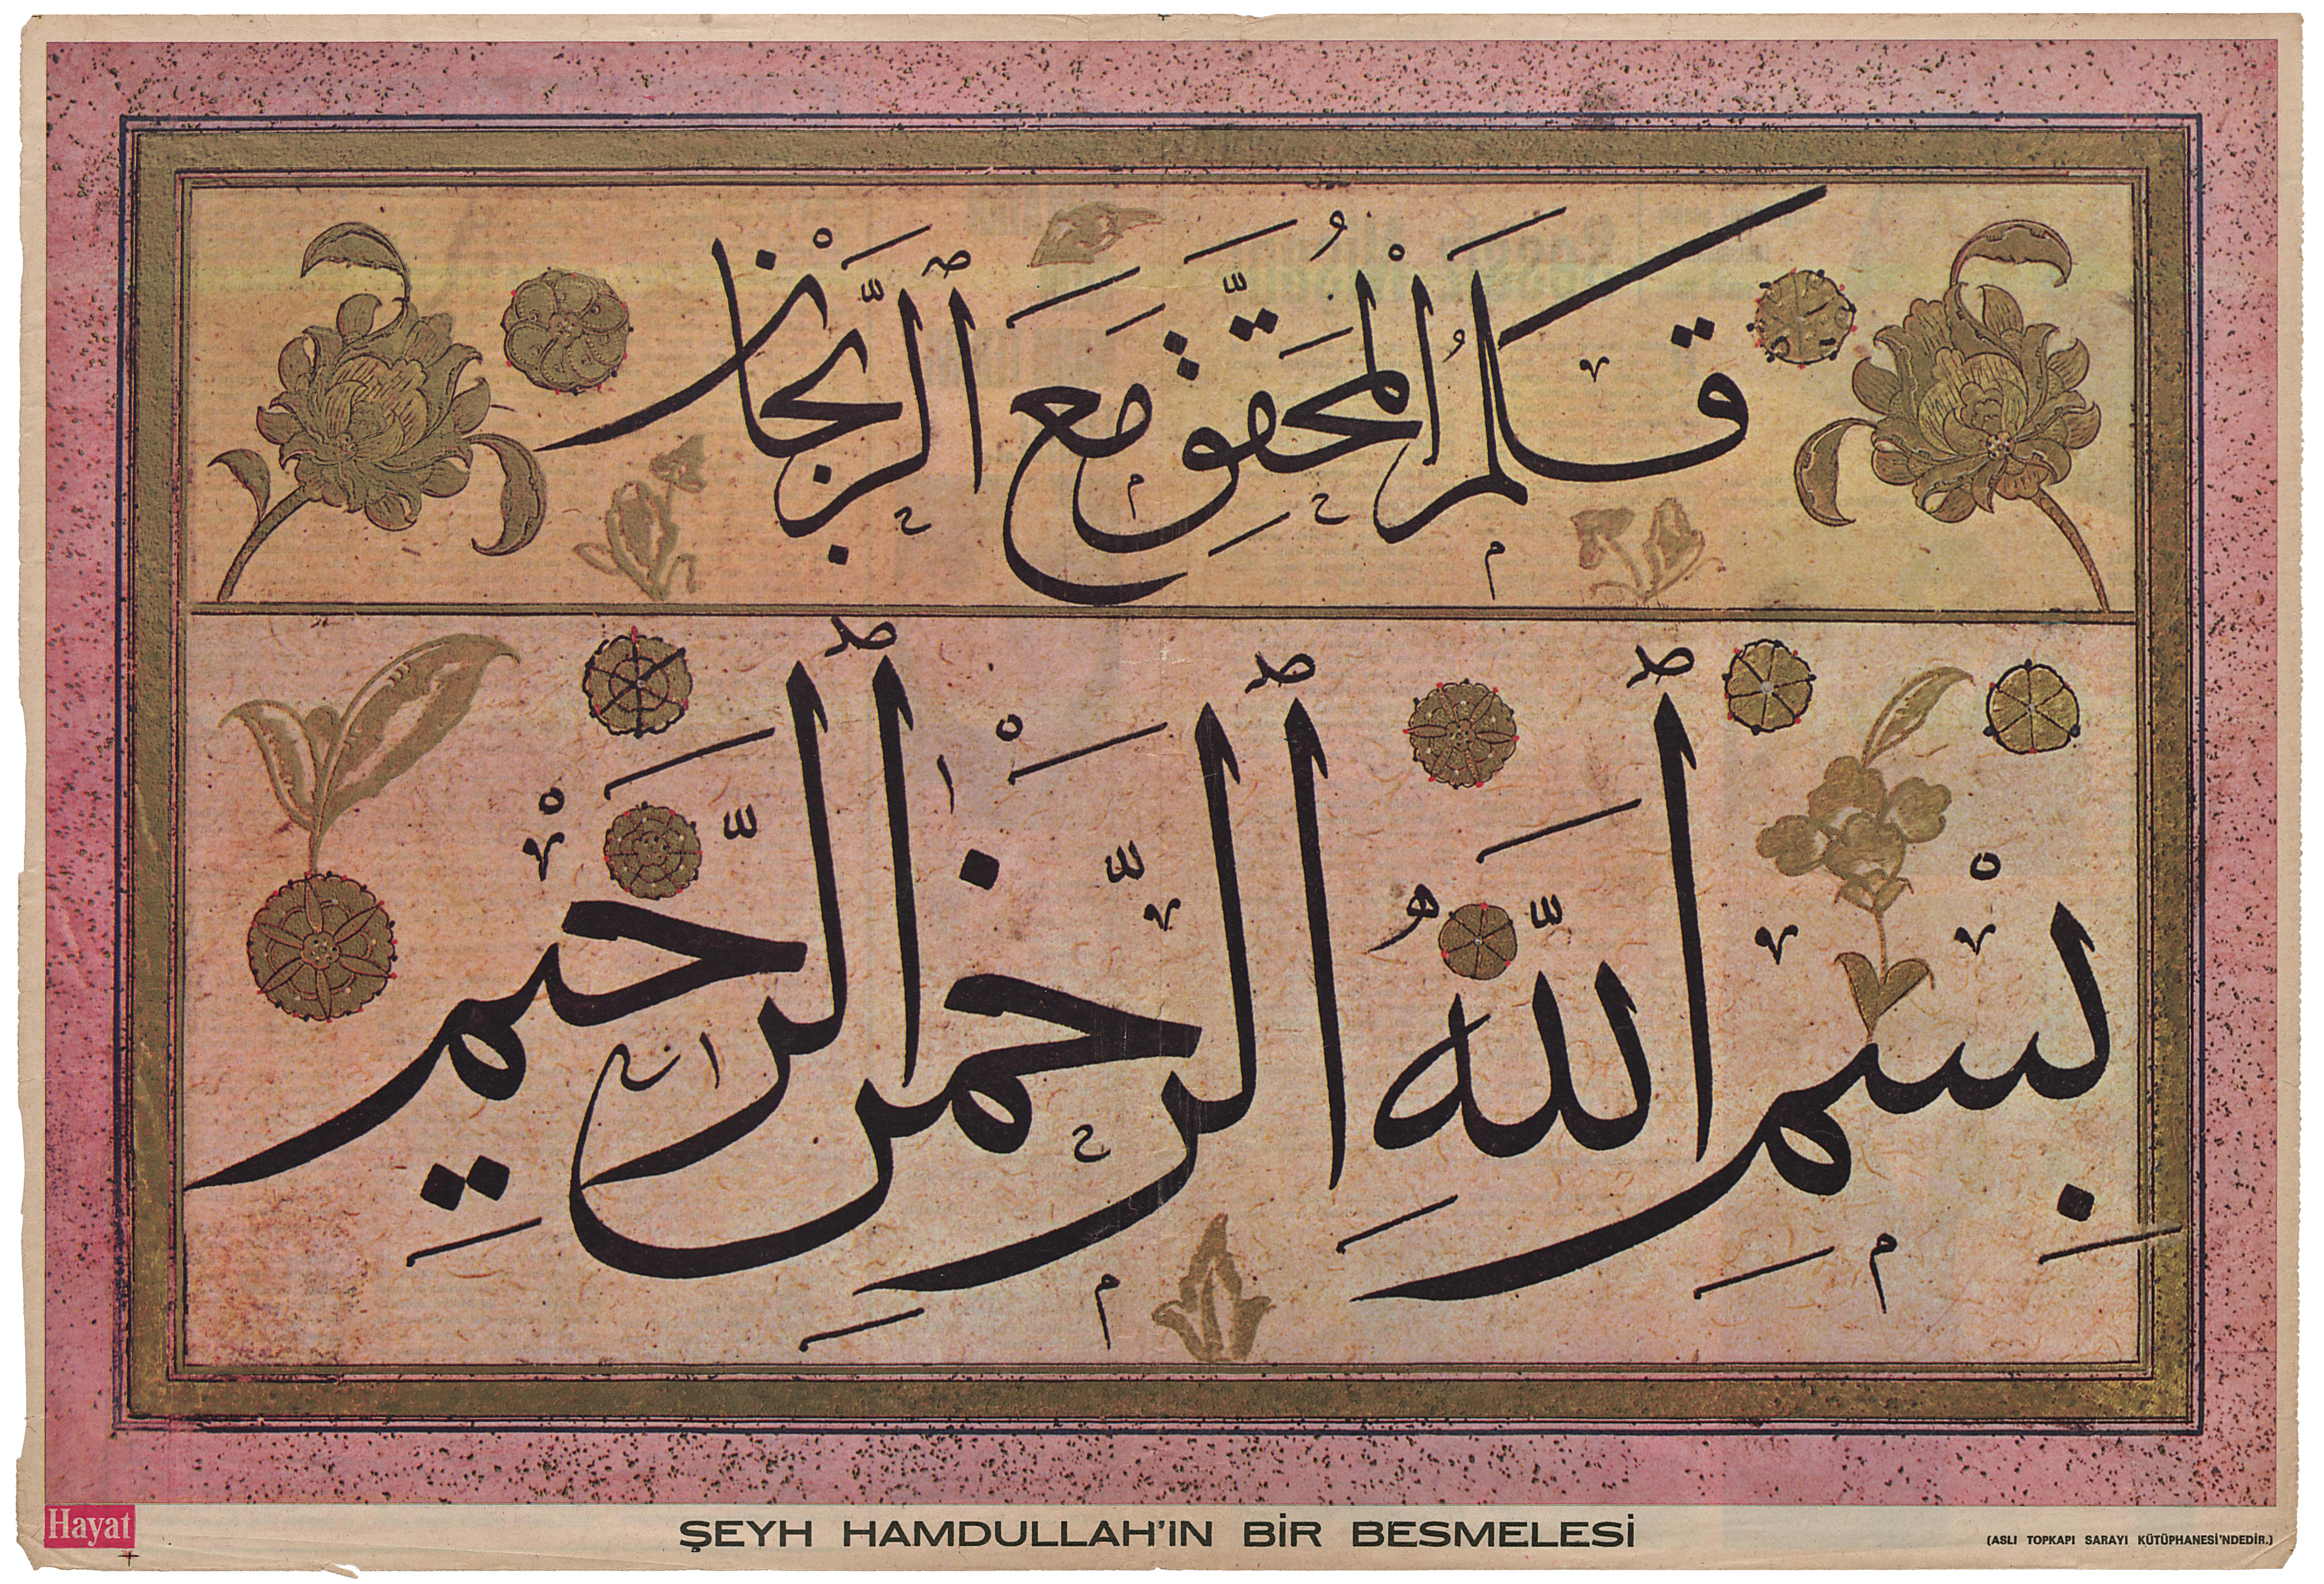 قَلَمُ الْمُحَقَّقِ مَعَ الرَّيْحَانْ
بِسْمِ اللّٰهِ الرَّحْمٰنِ الرَّحِيْمِ
Hayat
ŞEYH HAMDULLAH'IN BİR BESMELESİ
(ASLI TOPKAPI SARAYI KÜTÜPHANESİ'NDEDİR.)